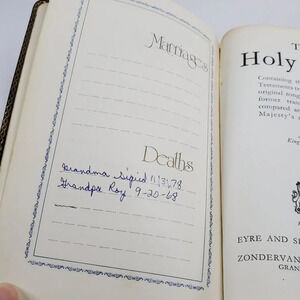 Marriages
Deaths
Grandma Sigrid 11,3,78
Grandpa Roy 9-20-68
T
Holy
Containing
Testaments
original tong
former
compared
Majesty's
King
EYRE AND
ZONDERVAN
GRAN